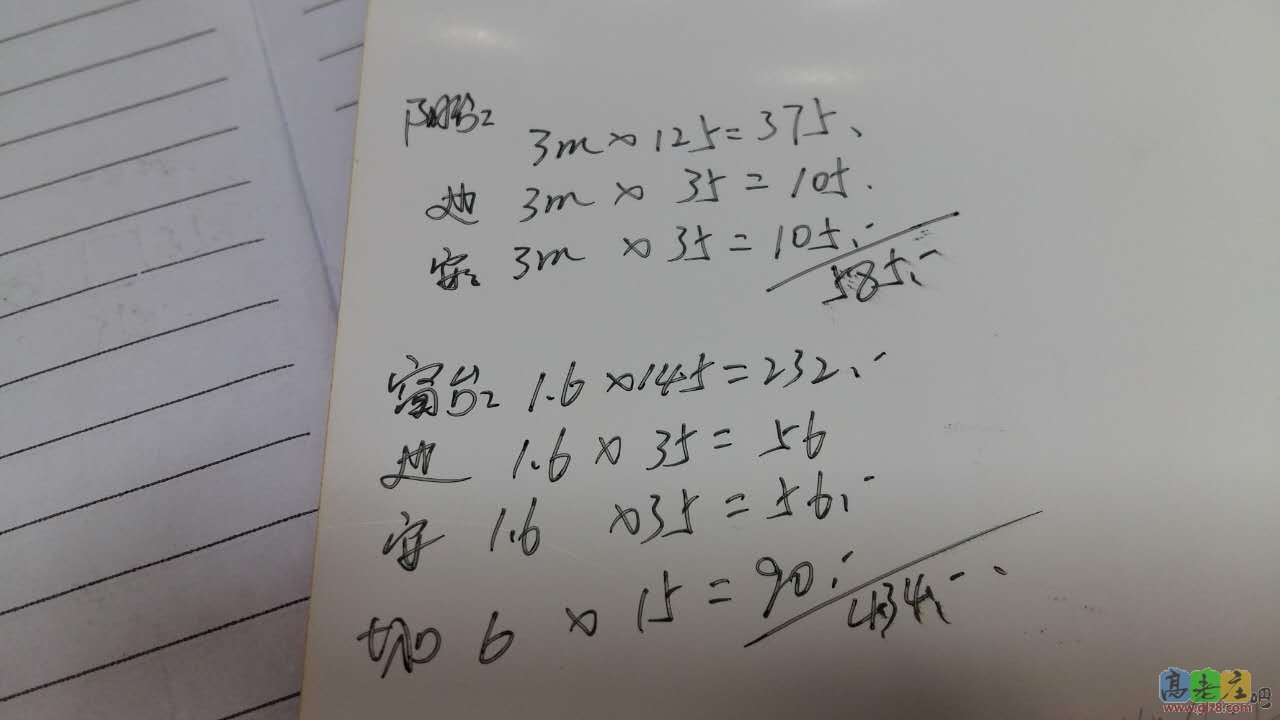 阳台:
3m × 125 = 375、
边 3m × 35 = 105.
安: 3m × 35 = 105.-
585.-
窗台: 1.6 × 145 = 232.-
边 1.6 × 35 = 56
安 1.6 × 35 = 56.-
切 6 × 15 = 90.-
434.-
高老庄吧
www.glz8.com